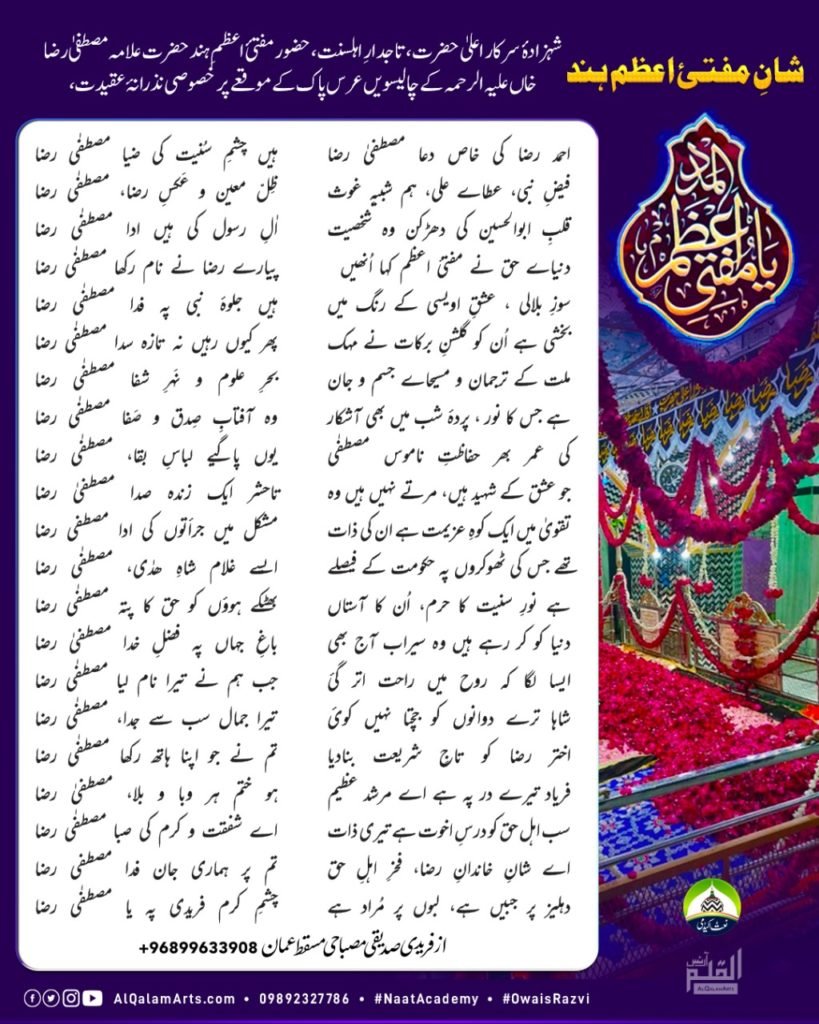 شانِ مفتیٔ اعظم ہند
شہزادۂ سرکار اعلیٰ حضرت، تاجدارِ اہلسنت، حضور مفتیٔ اعظمِ ہند حضرت علامہ مصطفیٰ رضا
خاں علیہ الرحمہ کے چالیسویں عرس پاک کے موقعے پر خصوصی نذرانۂ عقیدت،
المدد
یا مفتیِ اعظم
احمد رضا کی خاص دعا مصطفیٰ رضا
ہیں چشمِ سُنیت کی ضیا مصطفیٰ رضا
فیضِ نبی، عطاے علی، ہم شبیہِ غوث
ظِلّ معین و عکسِ رضا، مصطفیٰ رضا
قلبِ ابوالحسین کی دھڑکن وہ شخصیت
اٰلِ رسول کی ہیں ادا مصطفیٰ رضا
دنیاے حق نے مفتیٔ اعظم کہا اُنھیں
پیارے رضا نے نام رکھا مصطفیٰ رضا
سوزِ بلالی ، عشقِ اویسی کے رنگ میں
ہیں جلوۂ نبی پہ فدا مصطفیٰ رضا
بخشی ہے اُن کو گلشنِ برکات نے مہک
پھر کیوں رہیں نہ تازہ سدا مصطفیٰ رضا
ملت کے ترجمان و مسیحاے جسم و جان
بحرِ علوم و نہرِ شفا مصطفیٰ رضا
ہے جس کا نور ، پردۂ شب میں بھی آشکار
وہ آفتابِ صِدق و صَفا مصطفیٰ رضا
کی عمر بھر حفاظتِ ناموس مصطفیٰ
یوں پاگیے لباسِ بقا، مصطفیٰ رضا
جو عشق کے شہید ہیں، مرتے نہیں ہیں وہ
تاحشر ایک زندہ صدا مصطفیٰ رضا
تقویٰ میں ایک کوہِ عزیمت ہے ان کی ذات
مشکل میں جرأتوں کی ادا مصطفیٰ رضا
تھے جس کی ٹھوکروں پہ حکومت کے فیصلے
ایسے غلام شاہِ ھدٰی، مصطفیٰ رضا
ہے نورِ سنیت کا حرم، اُن کا آستاں
بھٹکے ہوؤں کو حق کا پتہ مصطفیٰ رضا
دنیا کو کر رہے ہیں وہ سیراب آج بھی
باغِ جہاں پہ فضلِ خدا مصطفیٰ رضا
ایسا لگا کہ روح میں راحت اتر گئی
جب ہم نے تیرا نام لیا مصطفیٰ رضا
شاہا ترے دوانوں کو جچتا نہیں کوئی
تیرا جمال سب سے جدا، مصطفیٰ رضا
اختر رضا کو تاجِ شریعت بنادیا
تم نے جو اپنا ہاتھ رکھا مصطفیٰ رضا
فریاد تیرے در پہ ہے اے مرشد عظیم
ہو ختم ہر وبا و بلا، مصطفیٰ رضا
سب اہل حق کو درسِ اخوت ہے تیری ذات
اے شفقت و کرم کی صبا مصطفیٰ رضا
اے شانِ خاندانِ رضا، فخرِ اہلِ حق
تم پر ہماری جان فدا مصطفیٰ رضا
دہلیز پر جبیں ہے، لبوں پر مُراد ہے
چشمِ کرم فریدی پہ یا مصطفیٰ رضا
از فریدی صدیقی مصباحی مسقط عمان 96899633908+
نعت اکیڈمی
القلم آرٹس
ALQALAMARTS
AlQalamArts.com • 09892327786 • #NaatAcademy • #OwaisRazvi